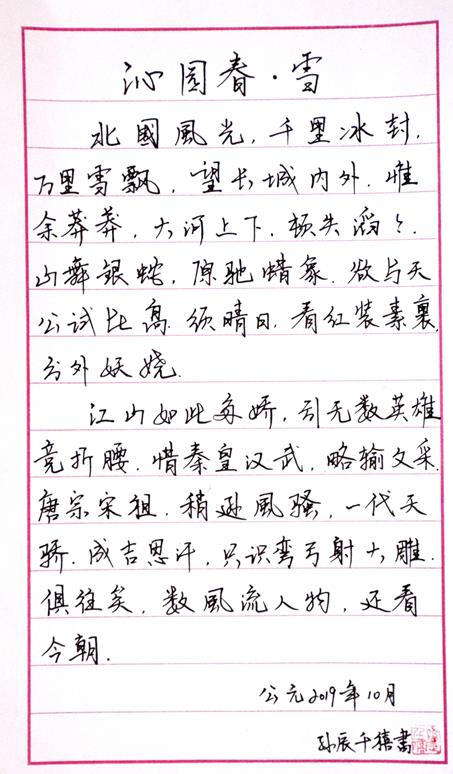 沁园春·雪
北國風光,千里冰封,
万里雪飘,望长城内外,惟
余莽莽,大河上下,顿失滔々.
山舞銀蛇,原驰蜡象.欲与天
公试比高.须晴日,看红装素裹,
分外妖娆.
江山如此多娇,引无数英雄
竞折腰.惜秦皇汉武,略输文采.
唐宗宋祖.稍逊風骚,一代天
骄.成吉思汗,只识弯弓射大雕.
俱往矣,数風流人物,还看
今朝.
公元2019年10月
孙辰千禧書